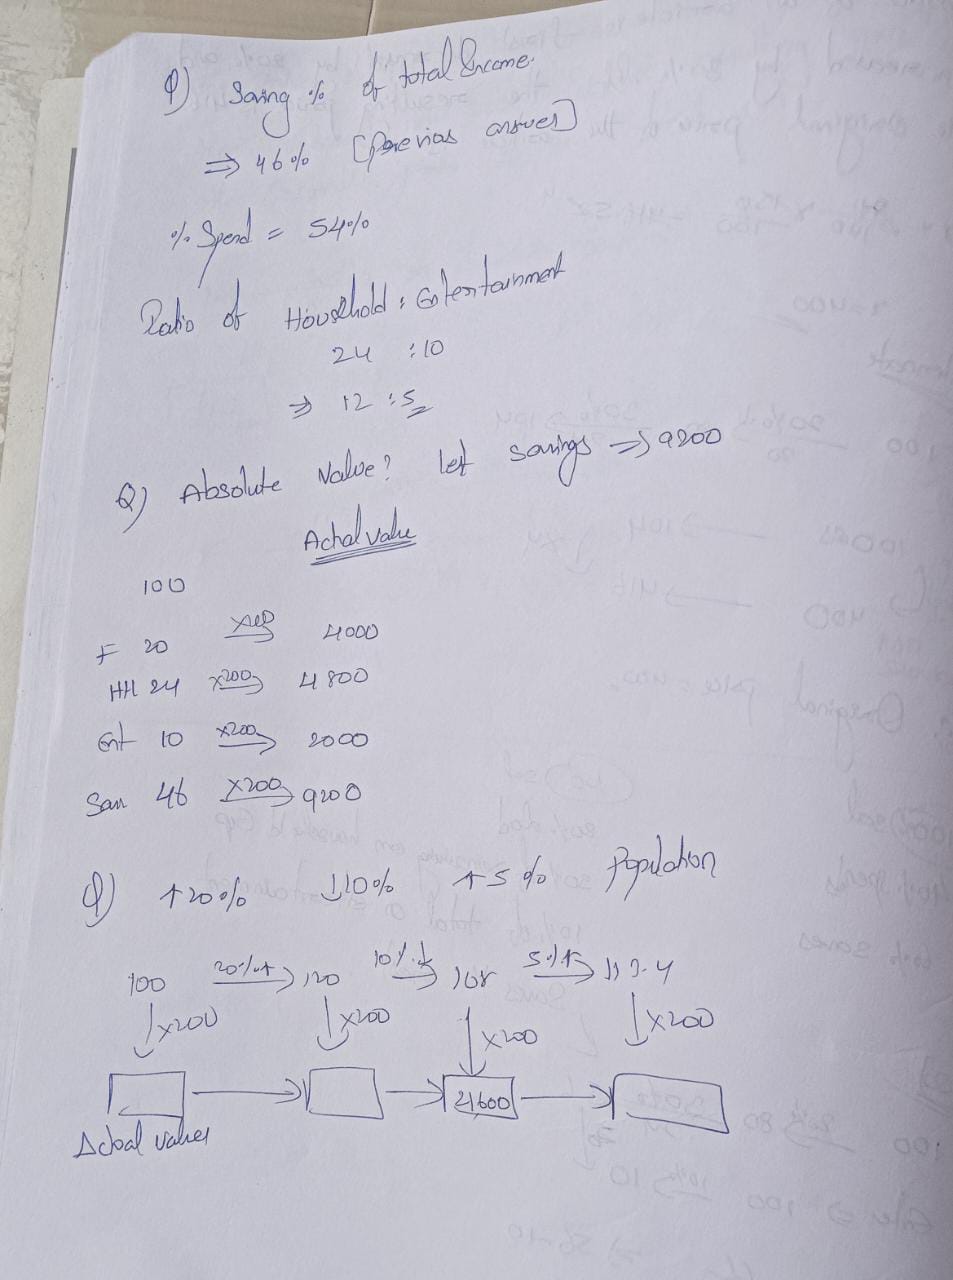 Q) Saving % of total Income.
⇒ 46% [Previous answer]
% Spend = 54%
Ratio of Household : Entertainment
24 : 10
⇒ 12 : 5
Q) Absolute Value? let savings ⇒ 9200
Actual value
100
F 20 4000
HH 24 x200→ 4800
Ent 10 x200→ 2000
Sav 46 x200→ 9200
Q) ↑20% ↓10% ↑5% Population
100 20%↑→ 120 10%↓→ 108 5%↑→ 113.4
↓x200 ↓x200 ↓x200 ↓x200
→ → 21600 →
Actual values